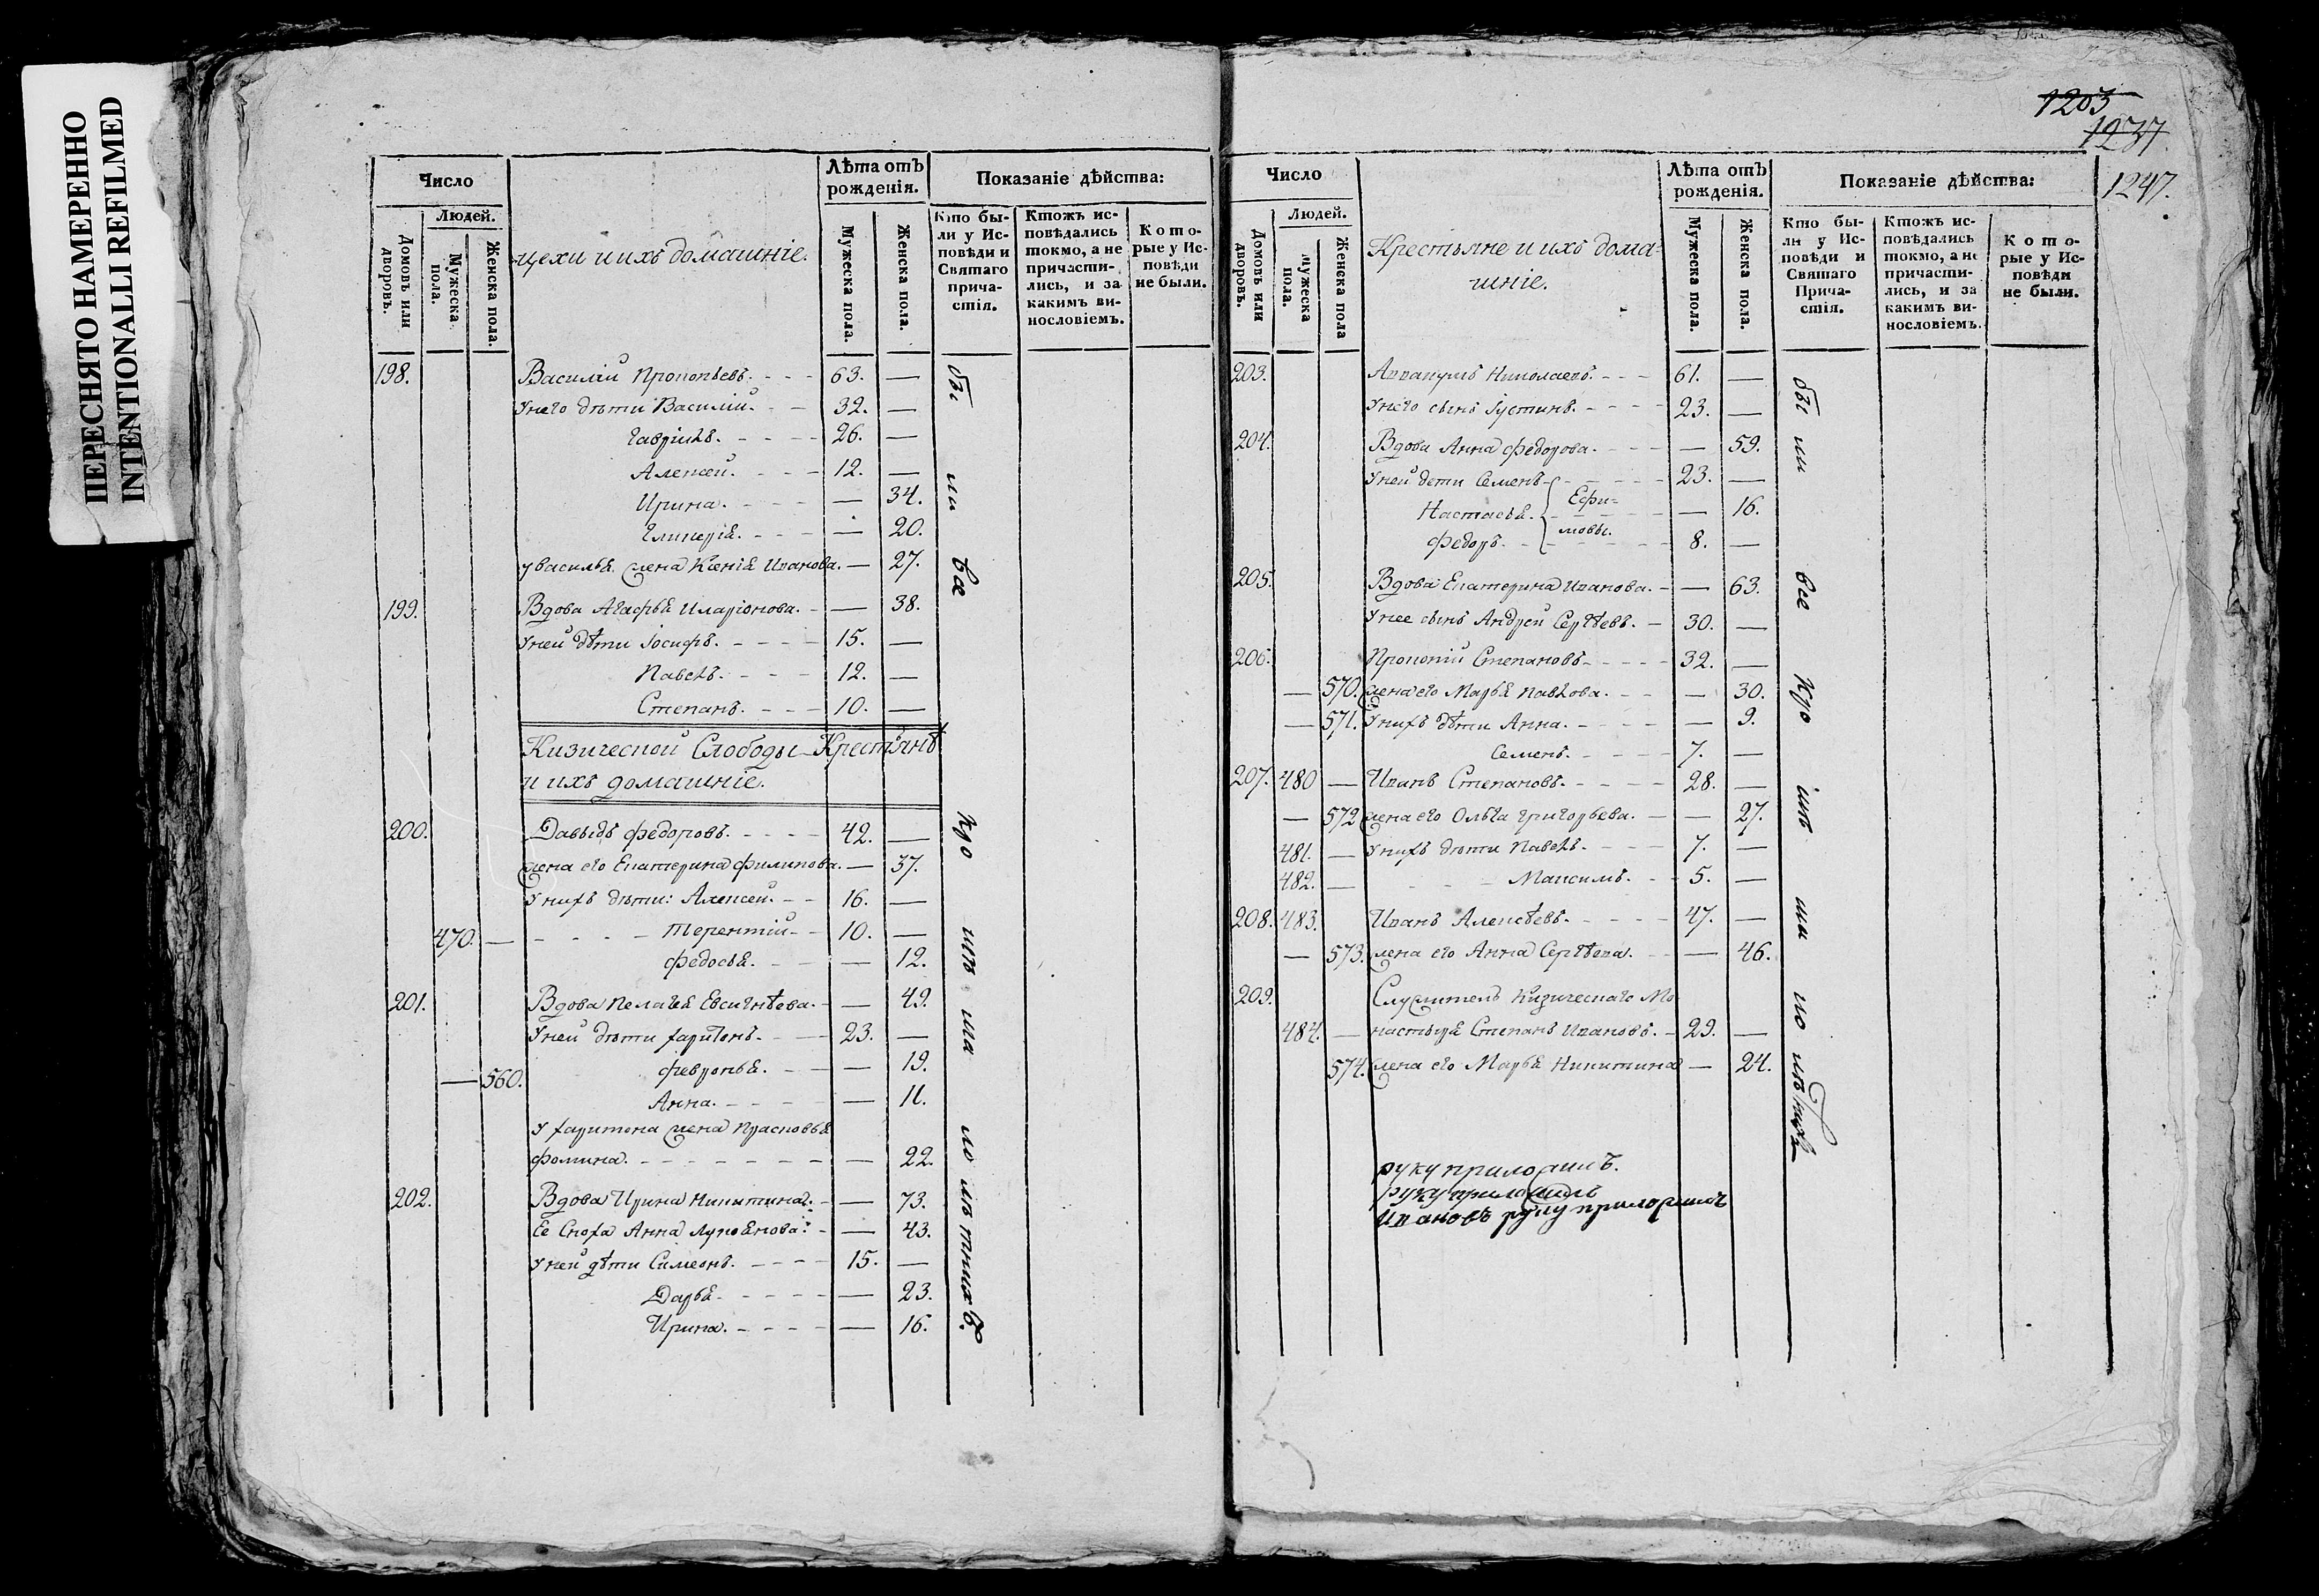 ПЕРЕСНЯТО НАМЕРЕННО
INTENTIONALLI REFILMED
Число
Людей.
Домовъ или дворовъ.
Мужеска пола.
Женска пола.
цехи и ихъ домашніе.
Лѣта отъ рожденія.
Мужеска пола.
Женска пола.
Показаніе дѣйства:
Кто бы-
ли у Ис-
повѣди и
Святаго
прича-
стія.
Ктожъ ис-
повѣдались
токмо, а не
причасти-
лись, и за
какимъ ви-
нословіемъ.
Кото-
рые у Ис-
повѣди
не были.
198. Василій Прокопьевъ. 63. —
У него дѣти Василій. 32. —
Гавріилъ. 26. —
Алексей. 12. —
Ирина. — 34.
Гликерія. — 20.
у Василья жена Ксенія Иванова. — 27.
199. Вдова Агафья Иларіонова. — 38.
У ней дѣти Іосифъ. 15. —
Павелъ. 12. —
Степанъ. 10. —
Кизической Слободы Крестьянѣ
и ихъ домашніе.
200. Давыдъ Федоровъ. 42. —
жена его Екатерина Филипова. — 37.
У нихъ дѣти: Алексей. 16. —
470. — Терентій 10. —
Федосья. — 12.
201. Вдова Пелагея Евсигнѣева. — 49.
У ней дѣти Харитонъ. 23. —
Февронья. — 19.
— 560.
Анна. — 11.
У Харитона жена Прасковья
Фомина. — 22.
202. Вдова Ирина Никитина. — 73.
Ее Сноха Анна Лукоянова. — 43.
У ней дѣти Симеонъ. 15. —
Дарья. — 23.
Ирина. — 16.
бы ли все
1203
1237.
1247.
Число
Людей.
Домовъ или дворовъ.
Мужеска пола.
Женска пола
Крестьяне и ихъ дома-
шніе.
Лѣта отъ рожденія.
Мужеска пола.
Женска пола.
Показаніе дѣйства:
Кто бы-
ли у Ис-
повѣди и
Святаго
Прича-
стія.
Ктожъ ис-
повѣдались
токмо, а не
причасти-
лись, и за
какимъ ви-
нословіемъ.
Кото-
рые у Ис-
повѣди
не были.
203. Аввакумъ Николаевъ. 61. —
У него сынъ Іустинъ. 23. —
204. Вдова Анна Федорова. — 59.
У ней дети Семенъ 23. —
Настасья. Ефи= — 16.
Федоръ. мовы. 8. —
205. Вдова Екатерина Иванова. — 63.
У нее сынъ Андрей Сергѣевъ. 30. —
206. Прокопій Степановъ 32. —
— 570. жена его Марья Павлова. — 30.
— 571. У нихъ дѣти Анна. — 9.
Семенъ. 7. —
207. 480 — Иванъ Степановъ. 28. —
— 572 жена его Ольга Григорьева. — 27.
481. — У нихъ дѣти Павелъ. 7. —
482. — Максимъ. 5. —
208. 483. Иванъ Алексѣевъ. 47. —
— 573. жена его Анна Сергѣева. — 46.
209. Служитель Кизическаго Мо
484. — настыря Степанъ Ивановъ. 29. —
574. жена его Марья Никитина — 24.
бы ли все
руку приложилъ.
руку приложилъ
Ивановъ руку приложилъ